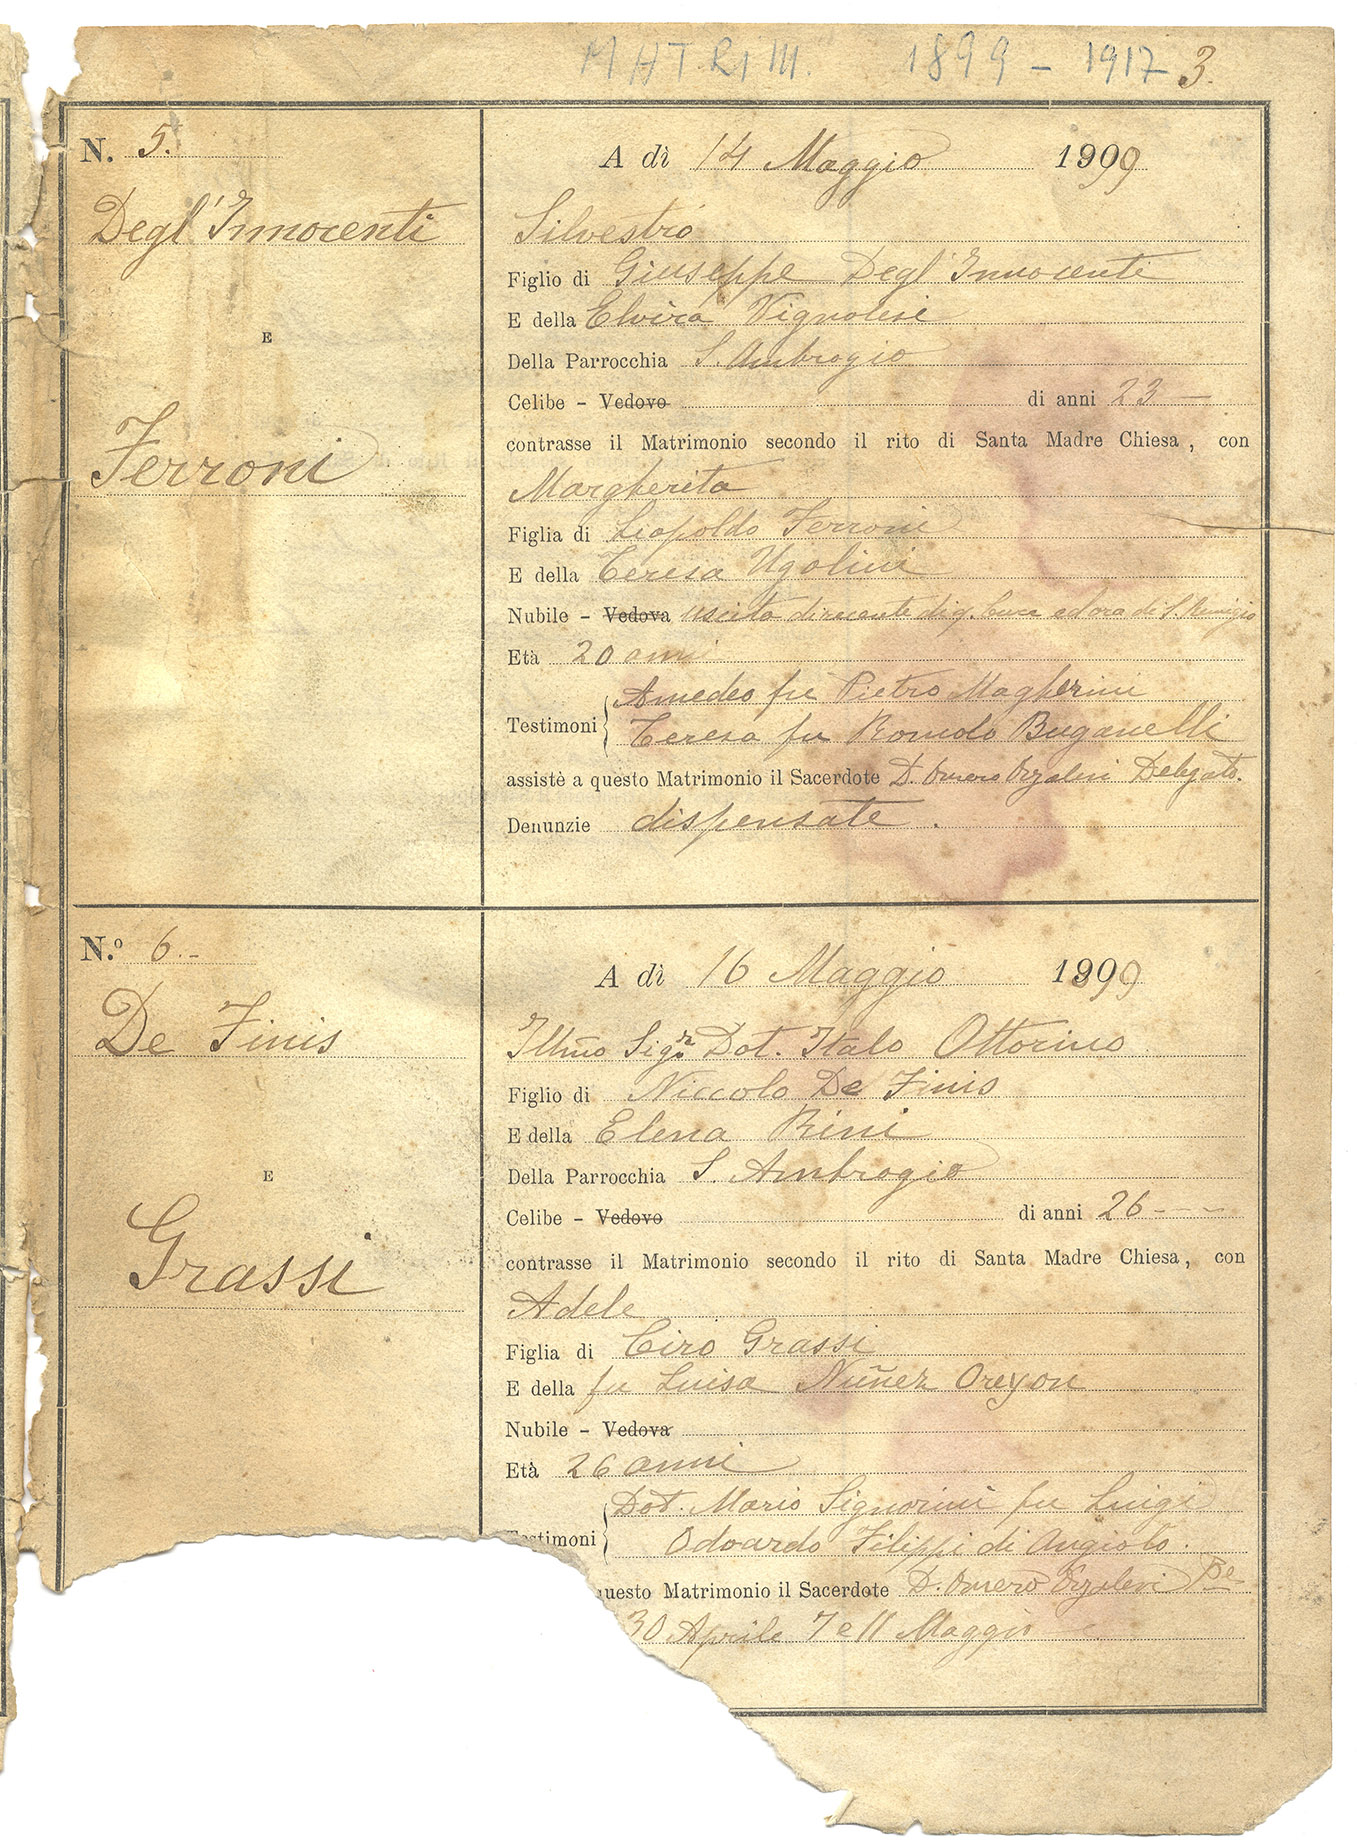 MATRIM. 1899 - 1917 3.
N. 5.
Degl'Innocenti
E
Ferroni
A dì 14 Maggio 1899
Silvestro
Figlio di Giuseppe Degl'Innocenti
E della Elvira Vignolesi
Della Parrocchia S. Ambrogio
Celibe - Vedovo di anni 23 —
contrasse il Matrimonio secondo il rito di Santa Madre Chiesa, con
Margherita
Figlia di Leopoldo Ferroni
E della Teresa Ugolini
Nubile - Vedova uscita di recente di q. Cura ed ora di S. Remigio
Età 20 anni
Testimoni Amedeo fu Pietro Magherini
Teresa fu Romolo Buganelli
assistè a questo Matrimonio il Sacerdote D. Omero Orzalesi Delegato.
Denunzie dispensate.
N.º 6.-
De Finis
E
Grassi
A dì 16 Maggio 1899
Illmo Sigr. Dot. Italo Ottorino
Figlio di Niccolo De Finis
E della Elena Rini
Della Parrocchia S. Ambrogio
Celibe - Vedovo di anni 26 - - -
contrasse il Matrimonio secondo il rito di Santa Madre Chiesa, con
Adele
Figlia di Ciro Grassi
E della fu Luisa Nuñez Oreyon
Nubile - Vedova
Età 26 anni
Testimoni Dot. Mario Signorini fu Luigi
Odoardo Filippi di Angiolo.
questo Matrimonio il Sacerdote D. Omero Orzalesi
30 Aprile 7 e 11 Maggio